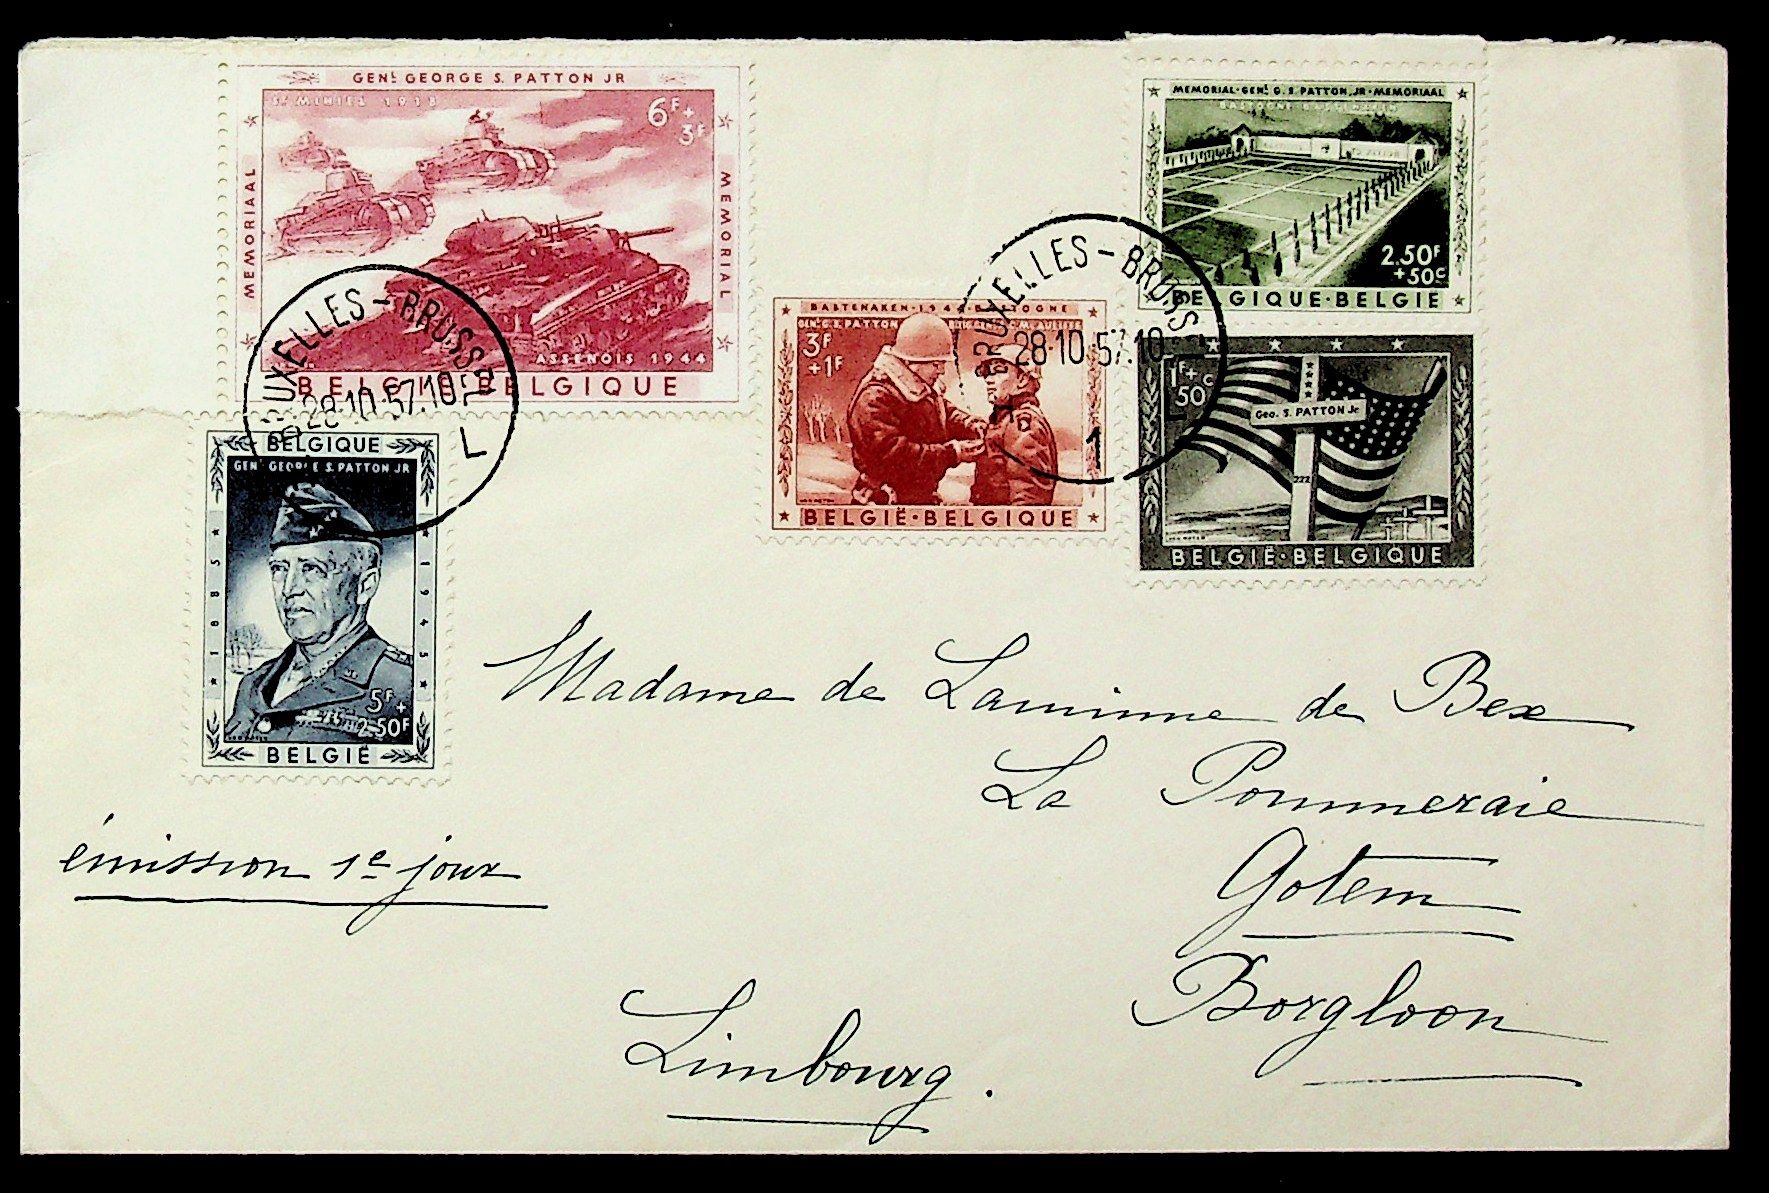 GENL GEORGE S. PATTON JR
ST MIHIEL 1918
6F + 3F
MEMORIAL
MEMORIAL
ASSENOIS 1944
BELGIË-BELGIQUE
BRUXELLES - BRUSSEL
28-10.57.10
L
BELGIQUE
GENL GEORGE S. PATTON JR
1885
1945
5F + 2.50F
BELGIË
BASTENAKEN-1944-BASTOGNE
GENL G.S. PATTON
3F +1F
BELGIË·BELGIQUE
BRUXELLES - BRUSSEL
28-10.57.10
1
MEMORIAL·GENL G.S. PATTON, JR·MEMORIAAL
BASTOGNE
2.50F +50C
BELGIQUE·BELGIE
1F + 50C
Geo. S. PATTON Jr
222
BELGIË·BELGIQUE
Madame de Laminne de Bex
La Pommeraie
Gotem
Borgloon
Limbourg.
émission 1e jour